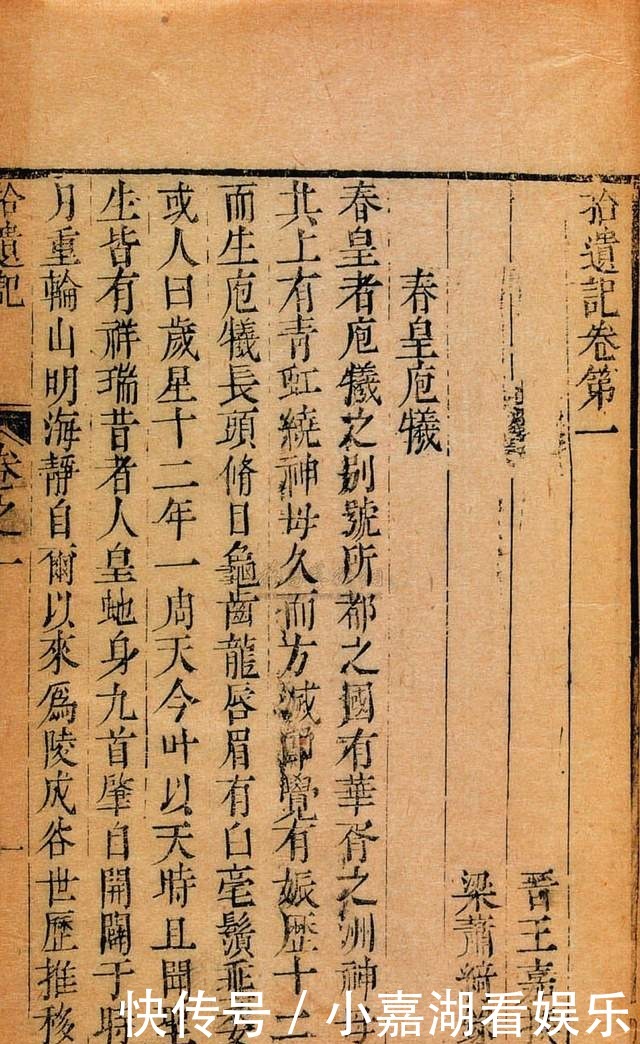 拾遺記卷第一
晉王嘉
梁蕭綺
春皇庖犧
春皇者庖犧之別號所都之國有華胥之洲神母
其上有青虹繞神母久而方滅即覺有娠歷十二
而生庖犧長頭脩目龜齒龍唇眉有白毫鬚垂委
或人曰歲星十二年一周天今叶以天時且聞
生皆有祥瑞昔者人皇虵身九首肇自開闢于時
月重輪山明海靜自爾以來為陵成谷世歷推移
拾遺記
卷之一
一
快传号 / 小嘉湖看娱乐